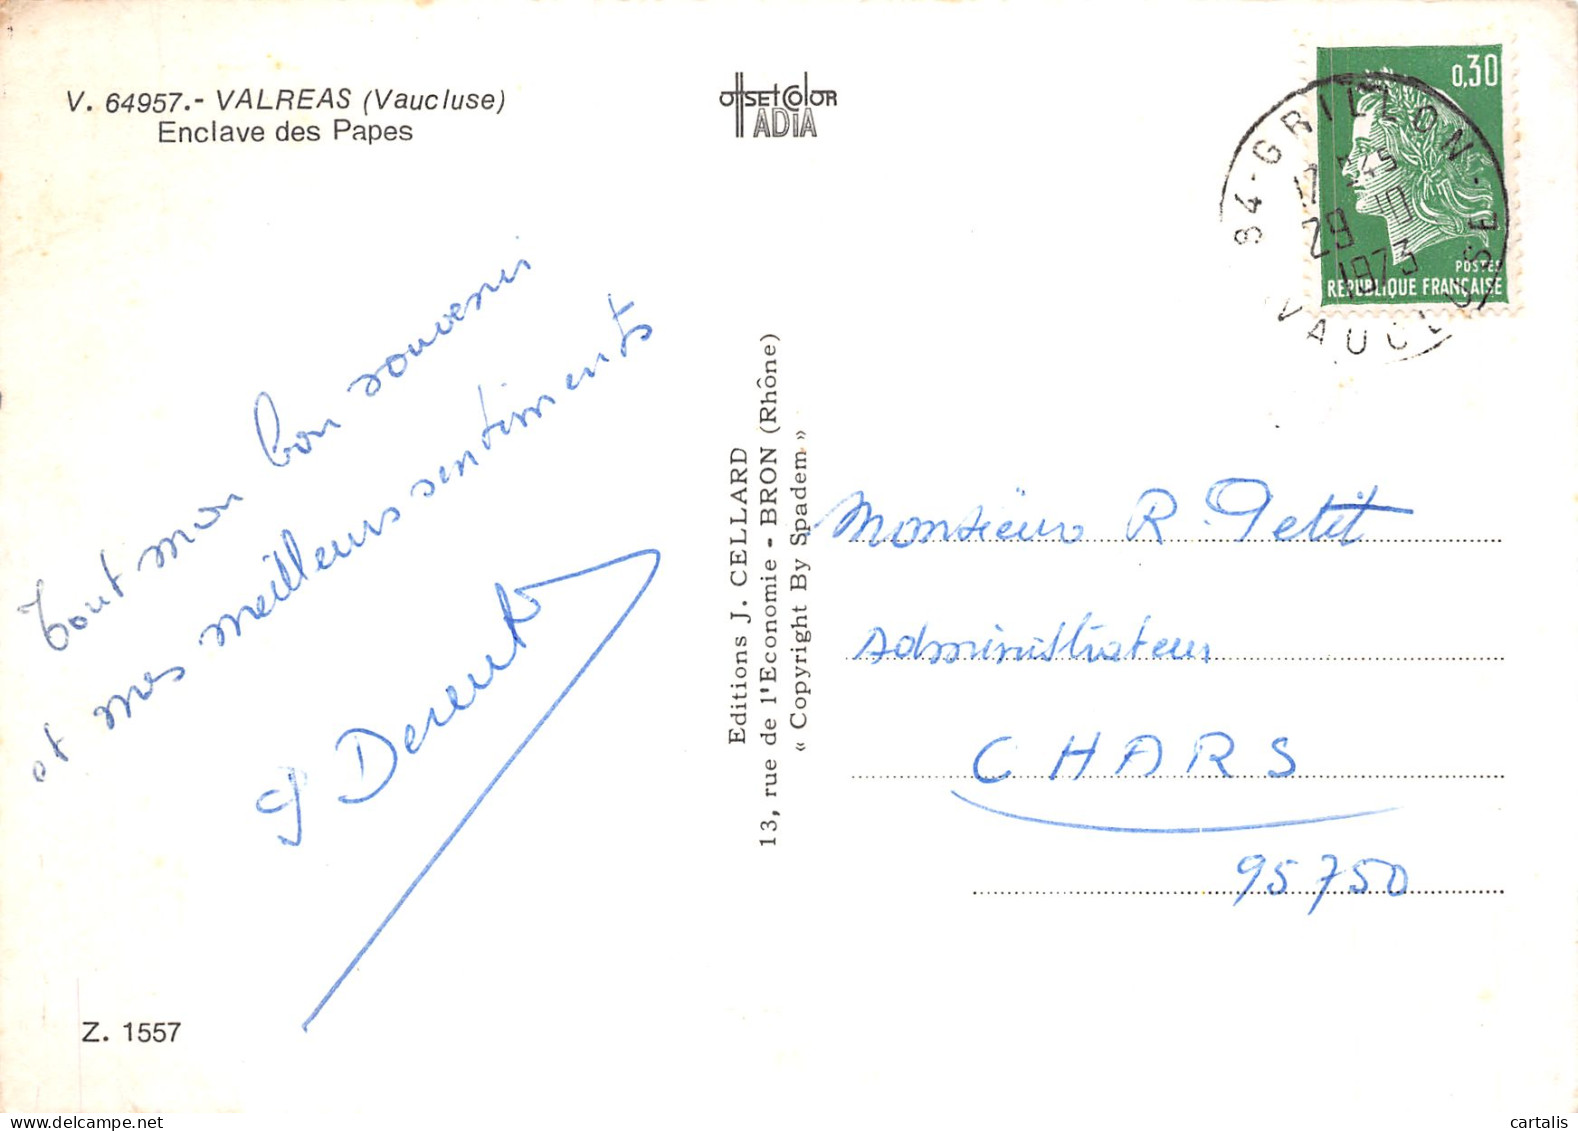 V. 64957.- VALREAS (Vaucluse)
Enclave des Papes
OffSEt ColOR
ADIA
0,30
POSTES
REPUBLIQUE FRANÇAISE
84-GRILLON-
12 H45
29 10
1973
VAUCLUSE
Tout mon bon souvenir
et mes meilleurs sentiments
Editions J. CELLARD
13, rue de l'Economie - BRON (Rhône)
« Copyright By Spadem »
Monsieur R. Petit
Administrateur
CHARS
95750
Z. 1557
cartalis